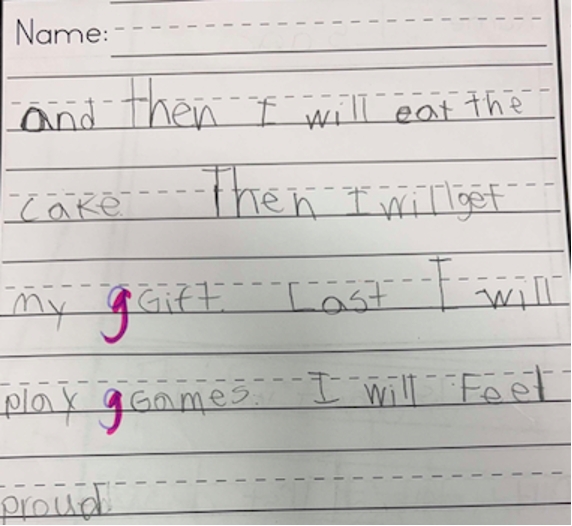 Name:
and then I will eat the
cake. Then I will get
my g Gift. Last I will
play g Games. I will Feel
proud.